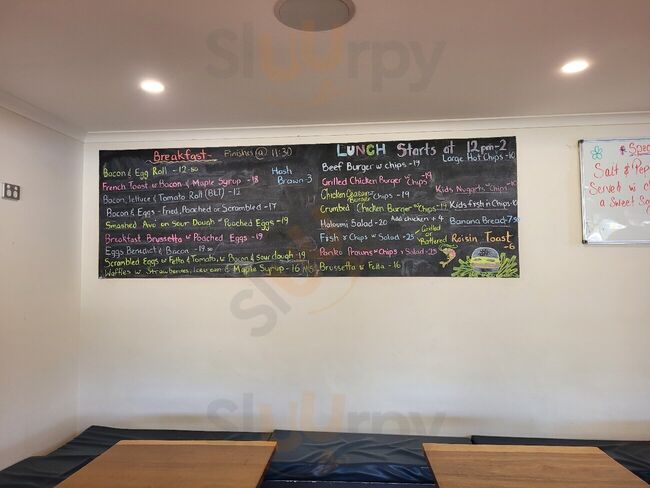 Slurrpy
Breakfast Finishes @ 11:30
Bacon & Egg Roll - 12.50
French Toast w Bacon & Maple Syrup - 18
Bacon, lettuce & Tomato Roll (BLT) - 12
Bacon & Eggs - Fried, Poached or Scrambled - 17
Smashed Avo on Sour Dough w Poached Eggs - 19
Breakfast Brussetta w Poached Eggs - 19
Eggs Benedict & Bacon - 19
Scrambled Eggs w Fetta & Tomato, w Bacon & Sour dough - 19
Waffles w Strawberries, Icecream & Maple Syrup - 16
Hash
Brown - 3
LUNCH Starts at 12pm - 2
Beef Burger w chips - 19
Grilled Chicken Burger w Chips - 19
Chicken Burger w Chips - 19
Crumbed Chicken Burger w Chips - 19
Haloumi Salad - 20 Add chicken + 4
Fish & Chips w Salad - 25 Grilled or Battered
Panko Prawns w Chips & Salad - 25
Brussetta w Fetta - 16
Large Hot Chips - 10
Kids Nuggets w Chips - 10
Kids fish n Chips - 10
Banana Bread - 7.50
Raisin Toast - 6
Spec
Salt & Pep
Served w c
a Sweet
Slurrpy
Slurrpy